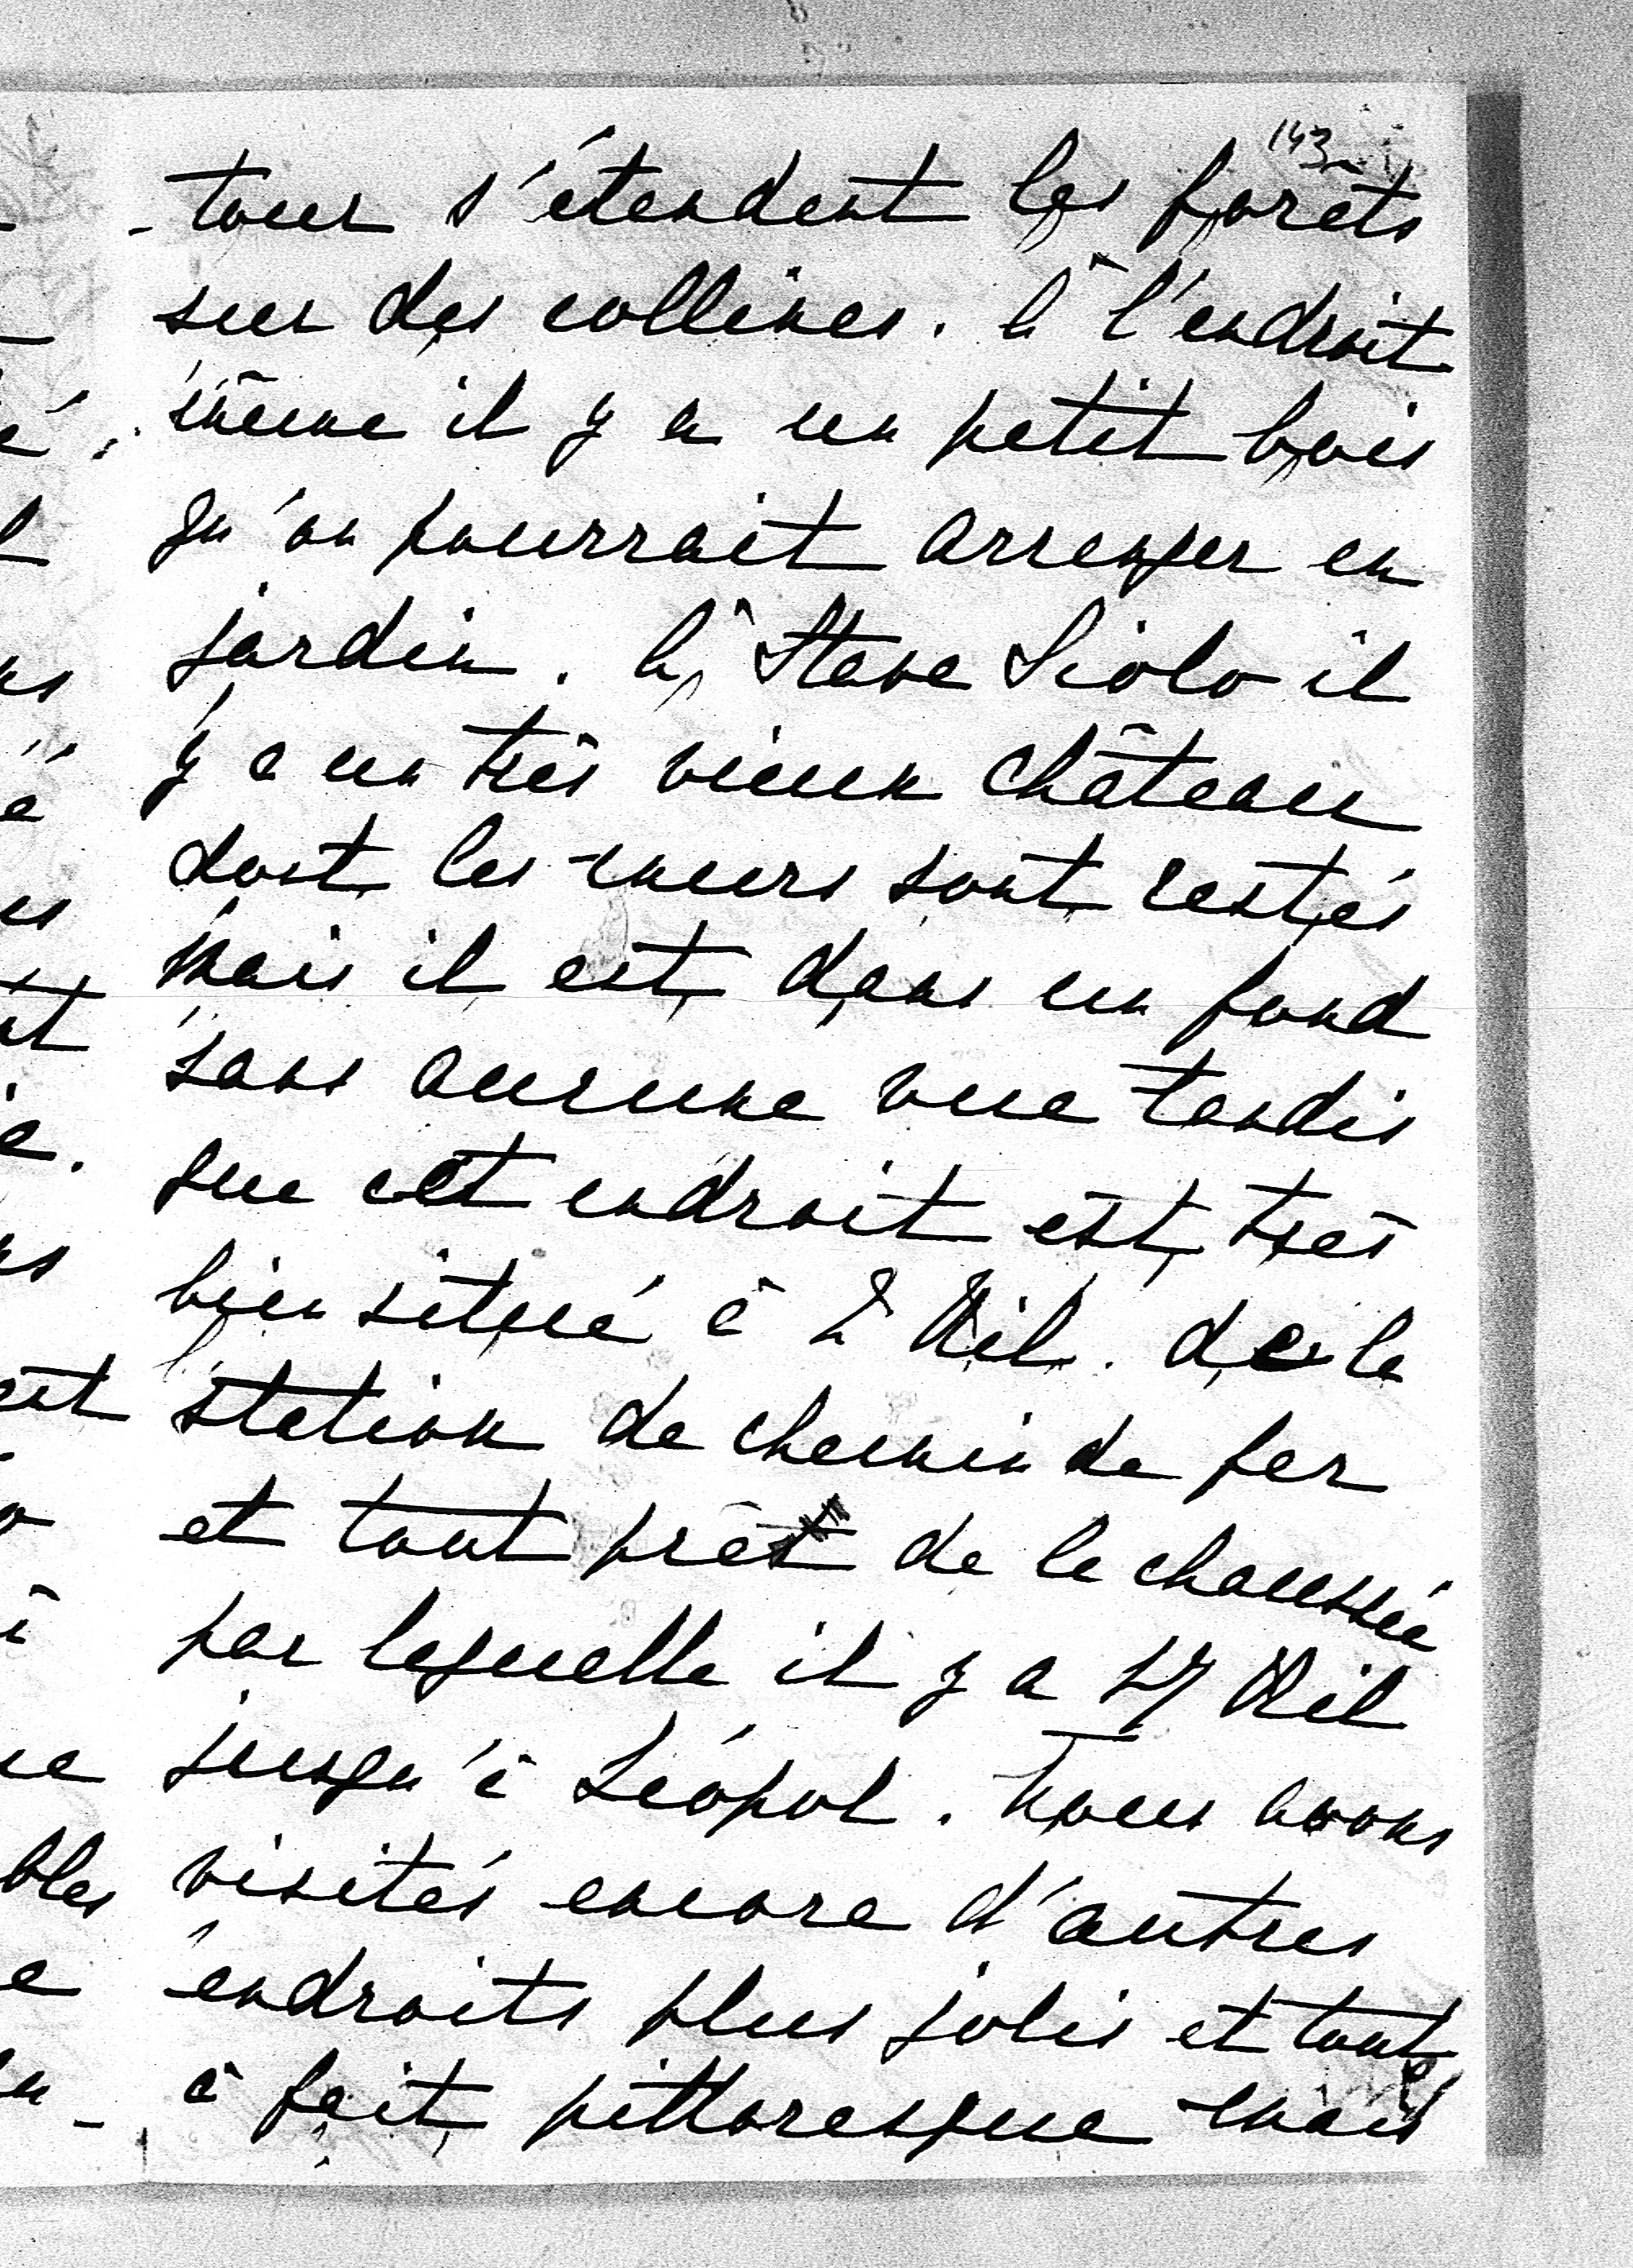 143
-tour s'étendent les forêts
sur des collines. à l'endroit
même il y a un petit bois
qu'on pourrait arranger en
jardin. à Stare Siolo il
y a un très vieux château
dont les murs sont restés
mais il est dans un fond
sans aucune vue tandis
que cet endroit est très
bien situé à 2 Kil. de la
station de chemin de fer
et tout près de la chaussée
par laquelle il y a 27 Kil
jusqu'à Léopol. Nous avons
visités encore d'autres
endroits plus jolis et tout
à fait pittoresque mais